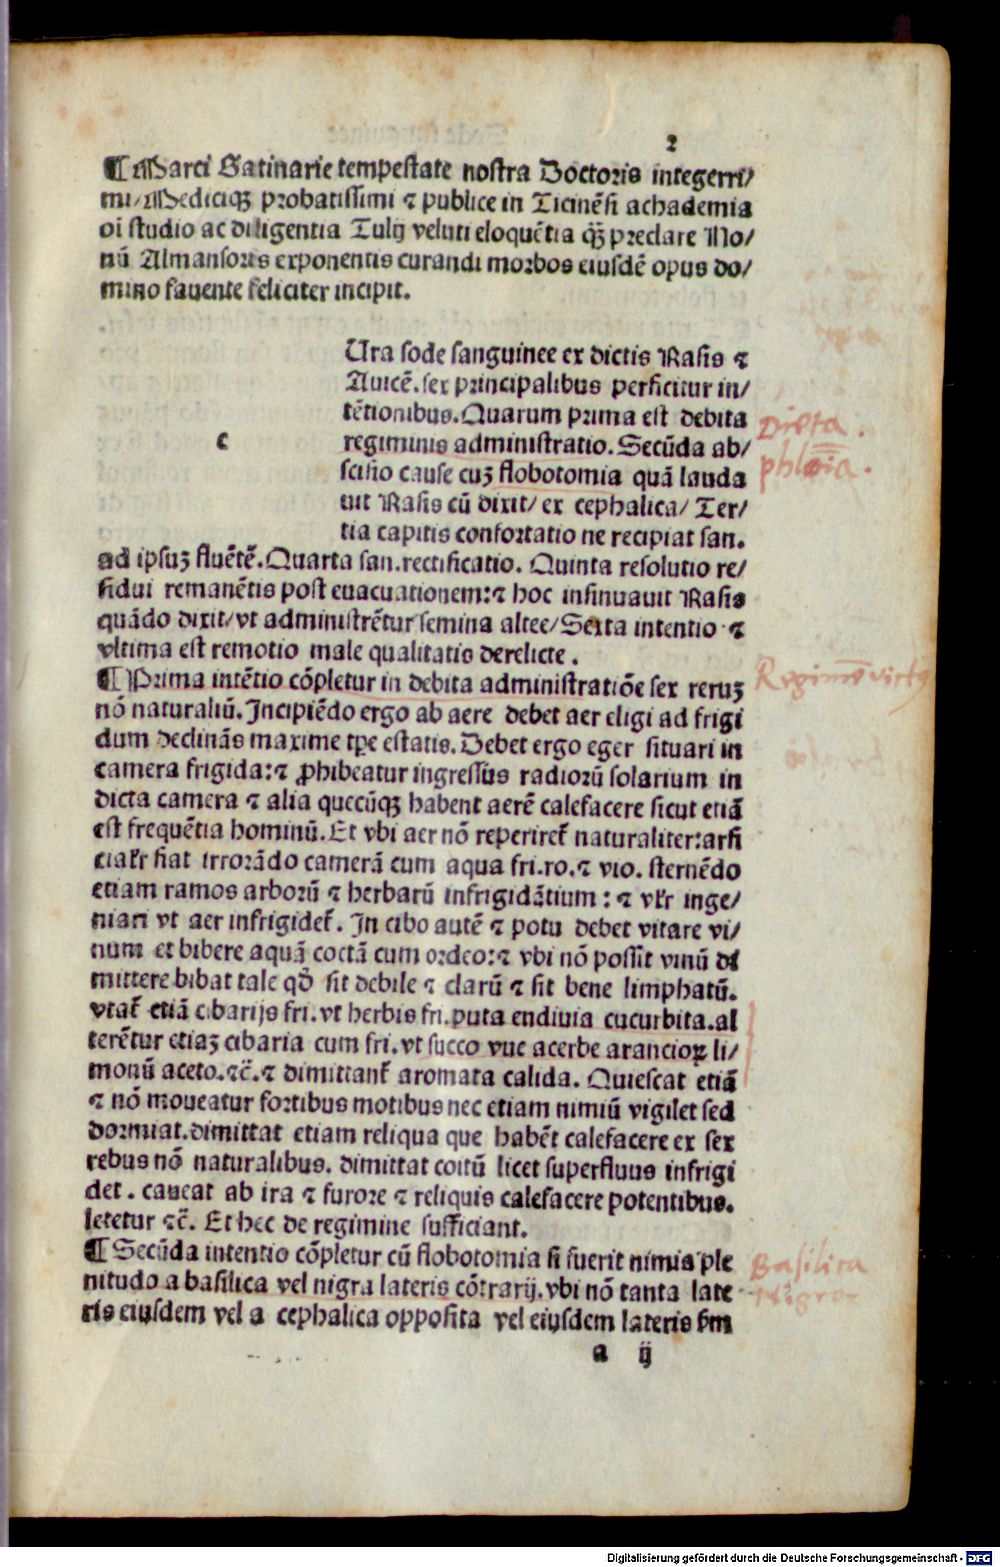 2
¶ Marci Gatinarie tempestate nostra Doctoris integerri/
mi/Mediciqꝫ probatissimi ⁊ publice in Ticinēsi achademia
oī studio ac diligentia Tulij veluti eloquētia qꝫ̄ preclare No/
nū Almansoris exponentis curandi morbos eiusdē opus do/
mino favente feliciter incipit.
c
Ura sode sanguinee ex dictis Rasis ⁊
Avicē. sex principalibus perficitur in/
tētionibus. Quarum prima est debita
regiminis administratio. Secūda ab/
scisio cause cuꝫ flobotomia quā lauda
vit Rasis cū dixit/ ex cephalica/ Ter/
tia capitis confortatio ne recipiat san.
ad ipsuꝫ fluētē. Quarta san. rectificatio. Quinta resolutio re/
sidui remanētis post evacuationem: ⁊ hoc insinuavit Rasis
quādo dixit/ vt administrētur semina altee/ Sexta intentio ⁊
vltima est remotio male qualitatis derelicte.
¶ Prima intētio cōpletur in debita administratiōe sex reruꝫ
nō naturaliū. Incipiēdo ergo ab aere debet aer eligi ad frigi
dum declinās maxime tpe estatis. Debet ergo eger situari in
camera frigida: ⁊ ꝓhibeatur ingressus radiorū solarium in
dicta camera ⁊ alia quecūqꝫ habent aerē calefacere sicut etiā
est frequētia hominū. Et vbi aer nō reperiret᷑ naturaliter: arfi
cialr̄ fiat irrorādo camerā cum aqua fri. ro. ⁊ vio. sternēdo
etiam ramos arborū ⁊ herbarū infrigidātium: ⁊ vlr̄ inge/
niari vt aer infrigidet᷑. In cibo autē ⁊ potu debet vitare vi/
num et bibere aquā coctā cum ordeo: ⁊ vbi nō possit vinū di
mittere bibat tale qđ sit debile ⁊ clarū ⁊ sit bene limphatū.
vtat᷑ etiā cibarijs fri. vt herbis fri. puta endivia cucurbita. al
terētur etiaꝫ cibaria cum fri. vt succo vve acerbe arancioꝝ li/
monū aceto. ⁊c̄. ⁊ dimittant᷑ aromata calida. Quiescat etiā
⁊ nō moveatur fortibus motibus nec etiam nimiū vigilet sed
dormiat. dimittat etiam reliqua que habēt calefacere ex sex
rebus nō naturalibus. dimittat coitū licet superfluus infrigi
det. caveat ab ira ⁊ furore ⁊ reliquis calefacere potentibus.
letetur ⁊c̄. Et hec de regimine sufficiant.
¶ Secūda intentio cōpletur cū flobotomia si fuerit nimis ple
nitudo a basilica vel nigra lateris cōtrarij. vbi nō tanta late
ris eiusdem vel a cephalica opposita vel eiusdem lateris ẜm
a ij
Dieta.
phlōīa.
Basilica
Nigra
Digitalisierung gefördert durch die Deutsche Forschungsgemeinschaft - DFG